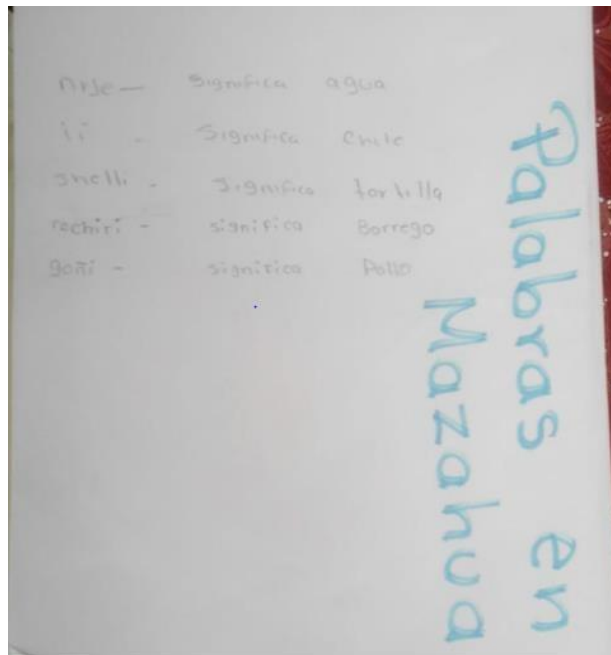 Palabras en
Mazahua
significa agua
ii - significa chile
significa tortilla
rechiri - significa Borrego
goñi - significa Pollo